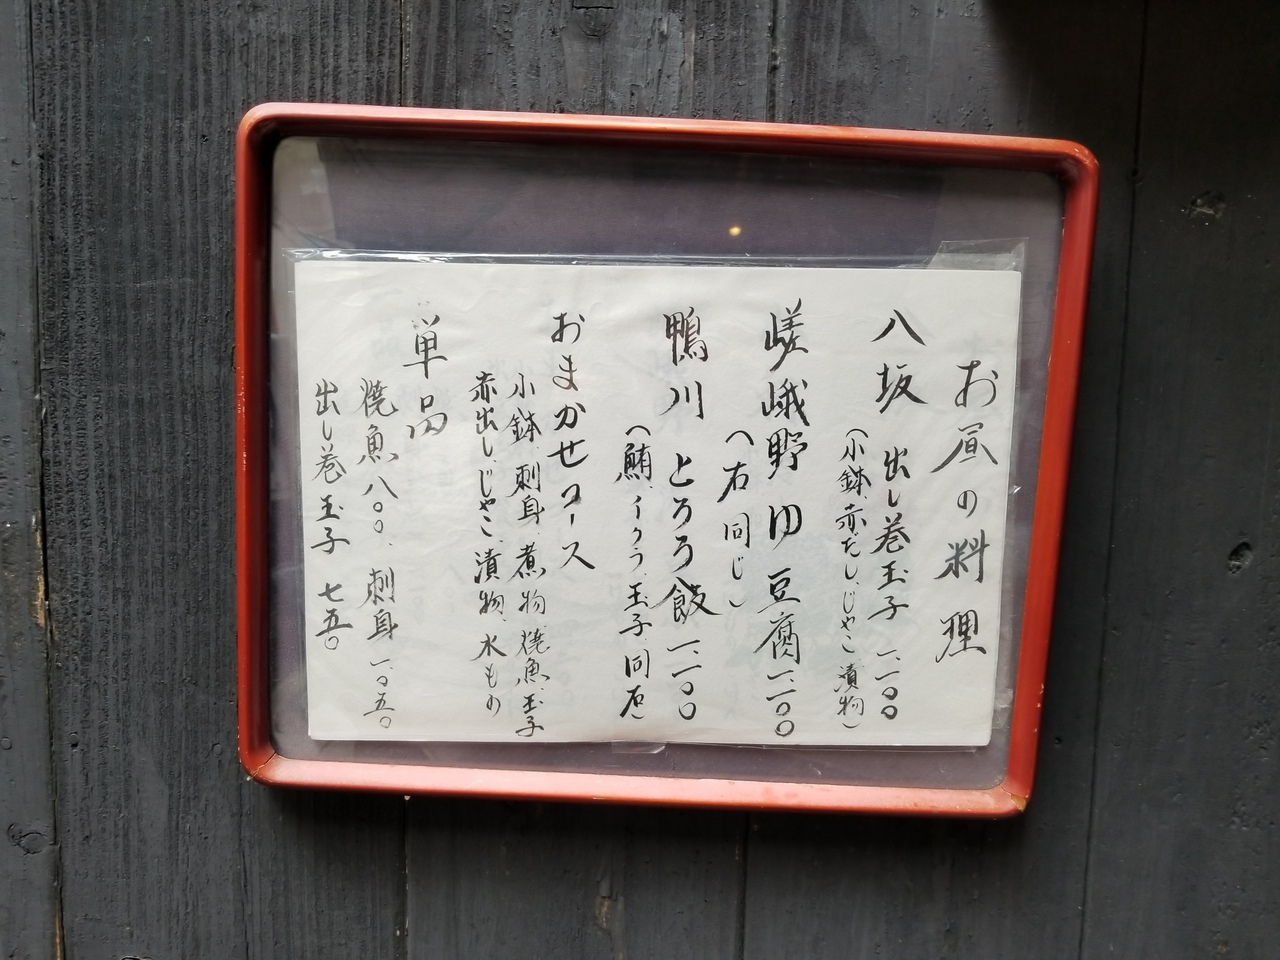 お昼の料理
八坂 出し巻玉子 一、一〇〇
(小鉢、赤だし、じゃこ、漬物)
嵯峨野 ゆ豆腐 一、一〇〇
(右同じ)
鴨川 とろろ飯 一、一〇〇
(鮪、イクラ、玉子、同右)
おまかせコース
小鉢、刺身、煮物、焼魚、玉子
赤出し、じゃこ、漬物、水もの
単品
焼魚 八〇〇、刺身 一、〇五〇
出し巻玉子 七五〇